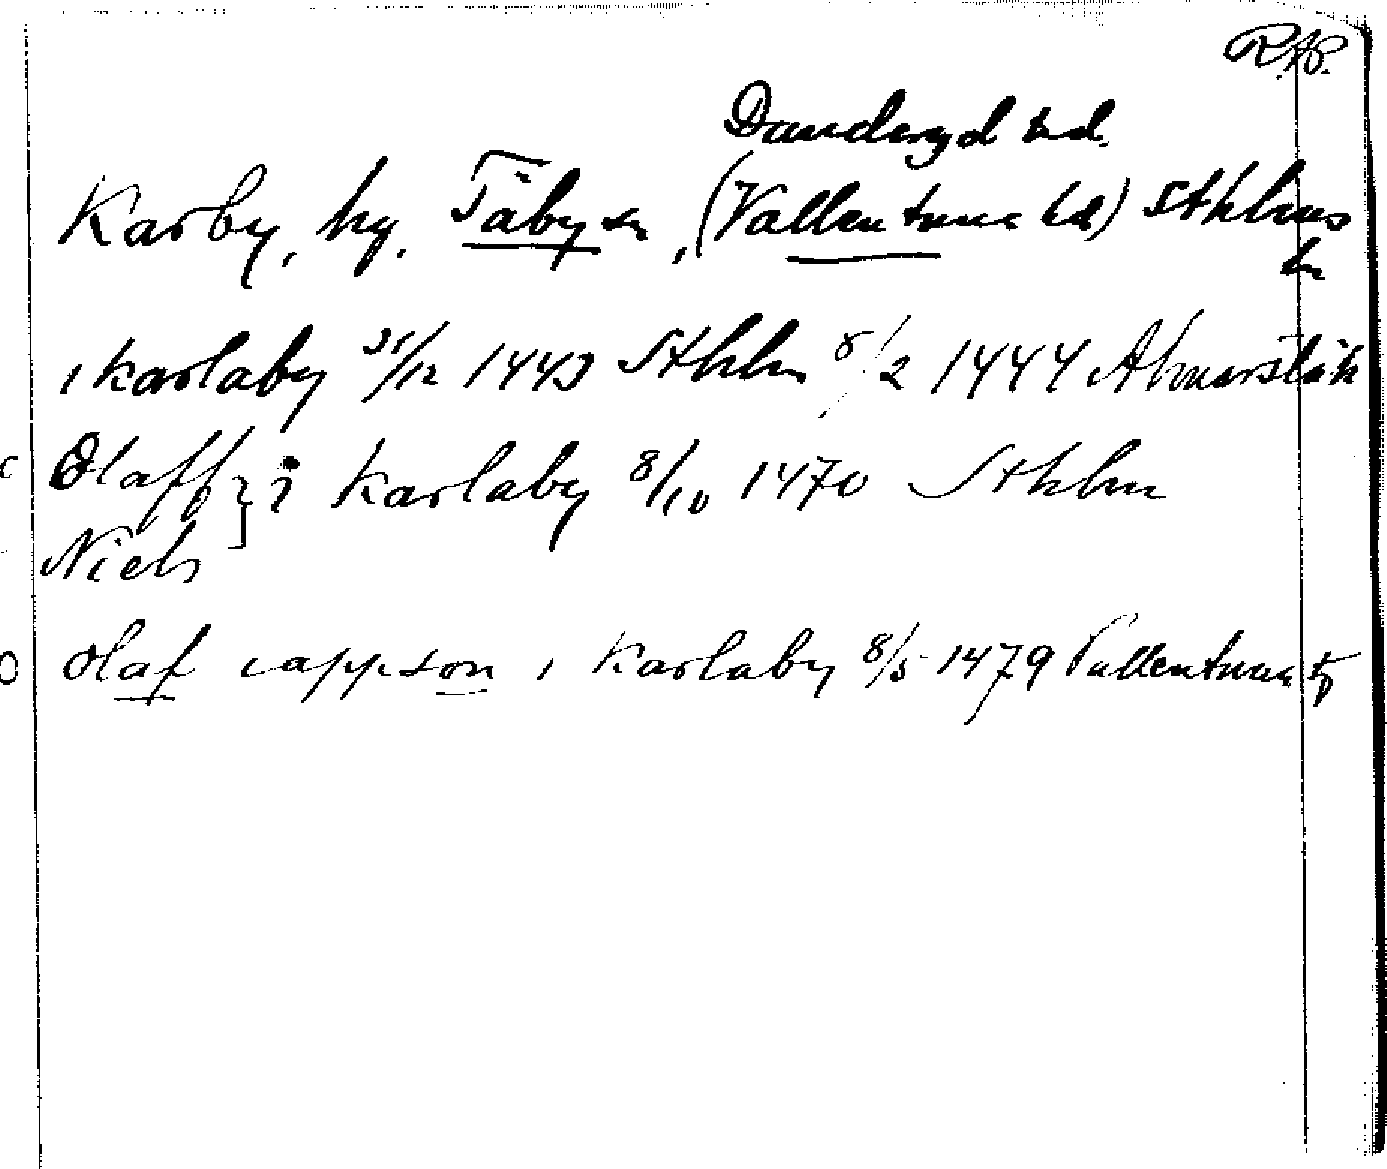 R.A.P.
Danderyd hd.
Karby, hg. Täby sn, (Vallentuna hd) Sthlms
ln
i karlaby 31/12 1443 Sthlm 8/2 1444 Almarstäk
Olaff } i karlaby 8/10 1470 Sthlm
Niels
Olaf cappson i karlaby 8/5 1479 Vallentuna